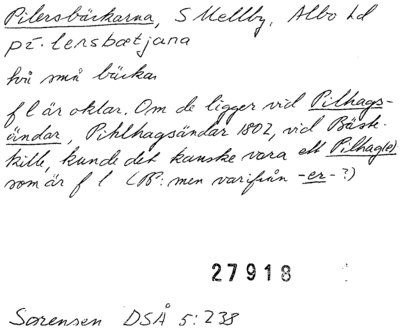 Pilersbäckarna, S Mellby, Albo hd
pi·lersbætjana
två små bäckar
f l är oklar. Om de ligger vid Pilhags-
ändar, Pihlhagsändar 1802, vid Bäst-
kille, kunde det kanske vara ett Pilhag(e)
som är f l (B: men varifrån -er- ?)
27918
Sørensen DSÅ 5:238